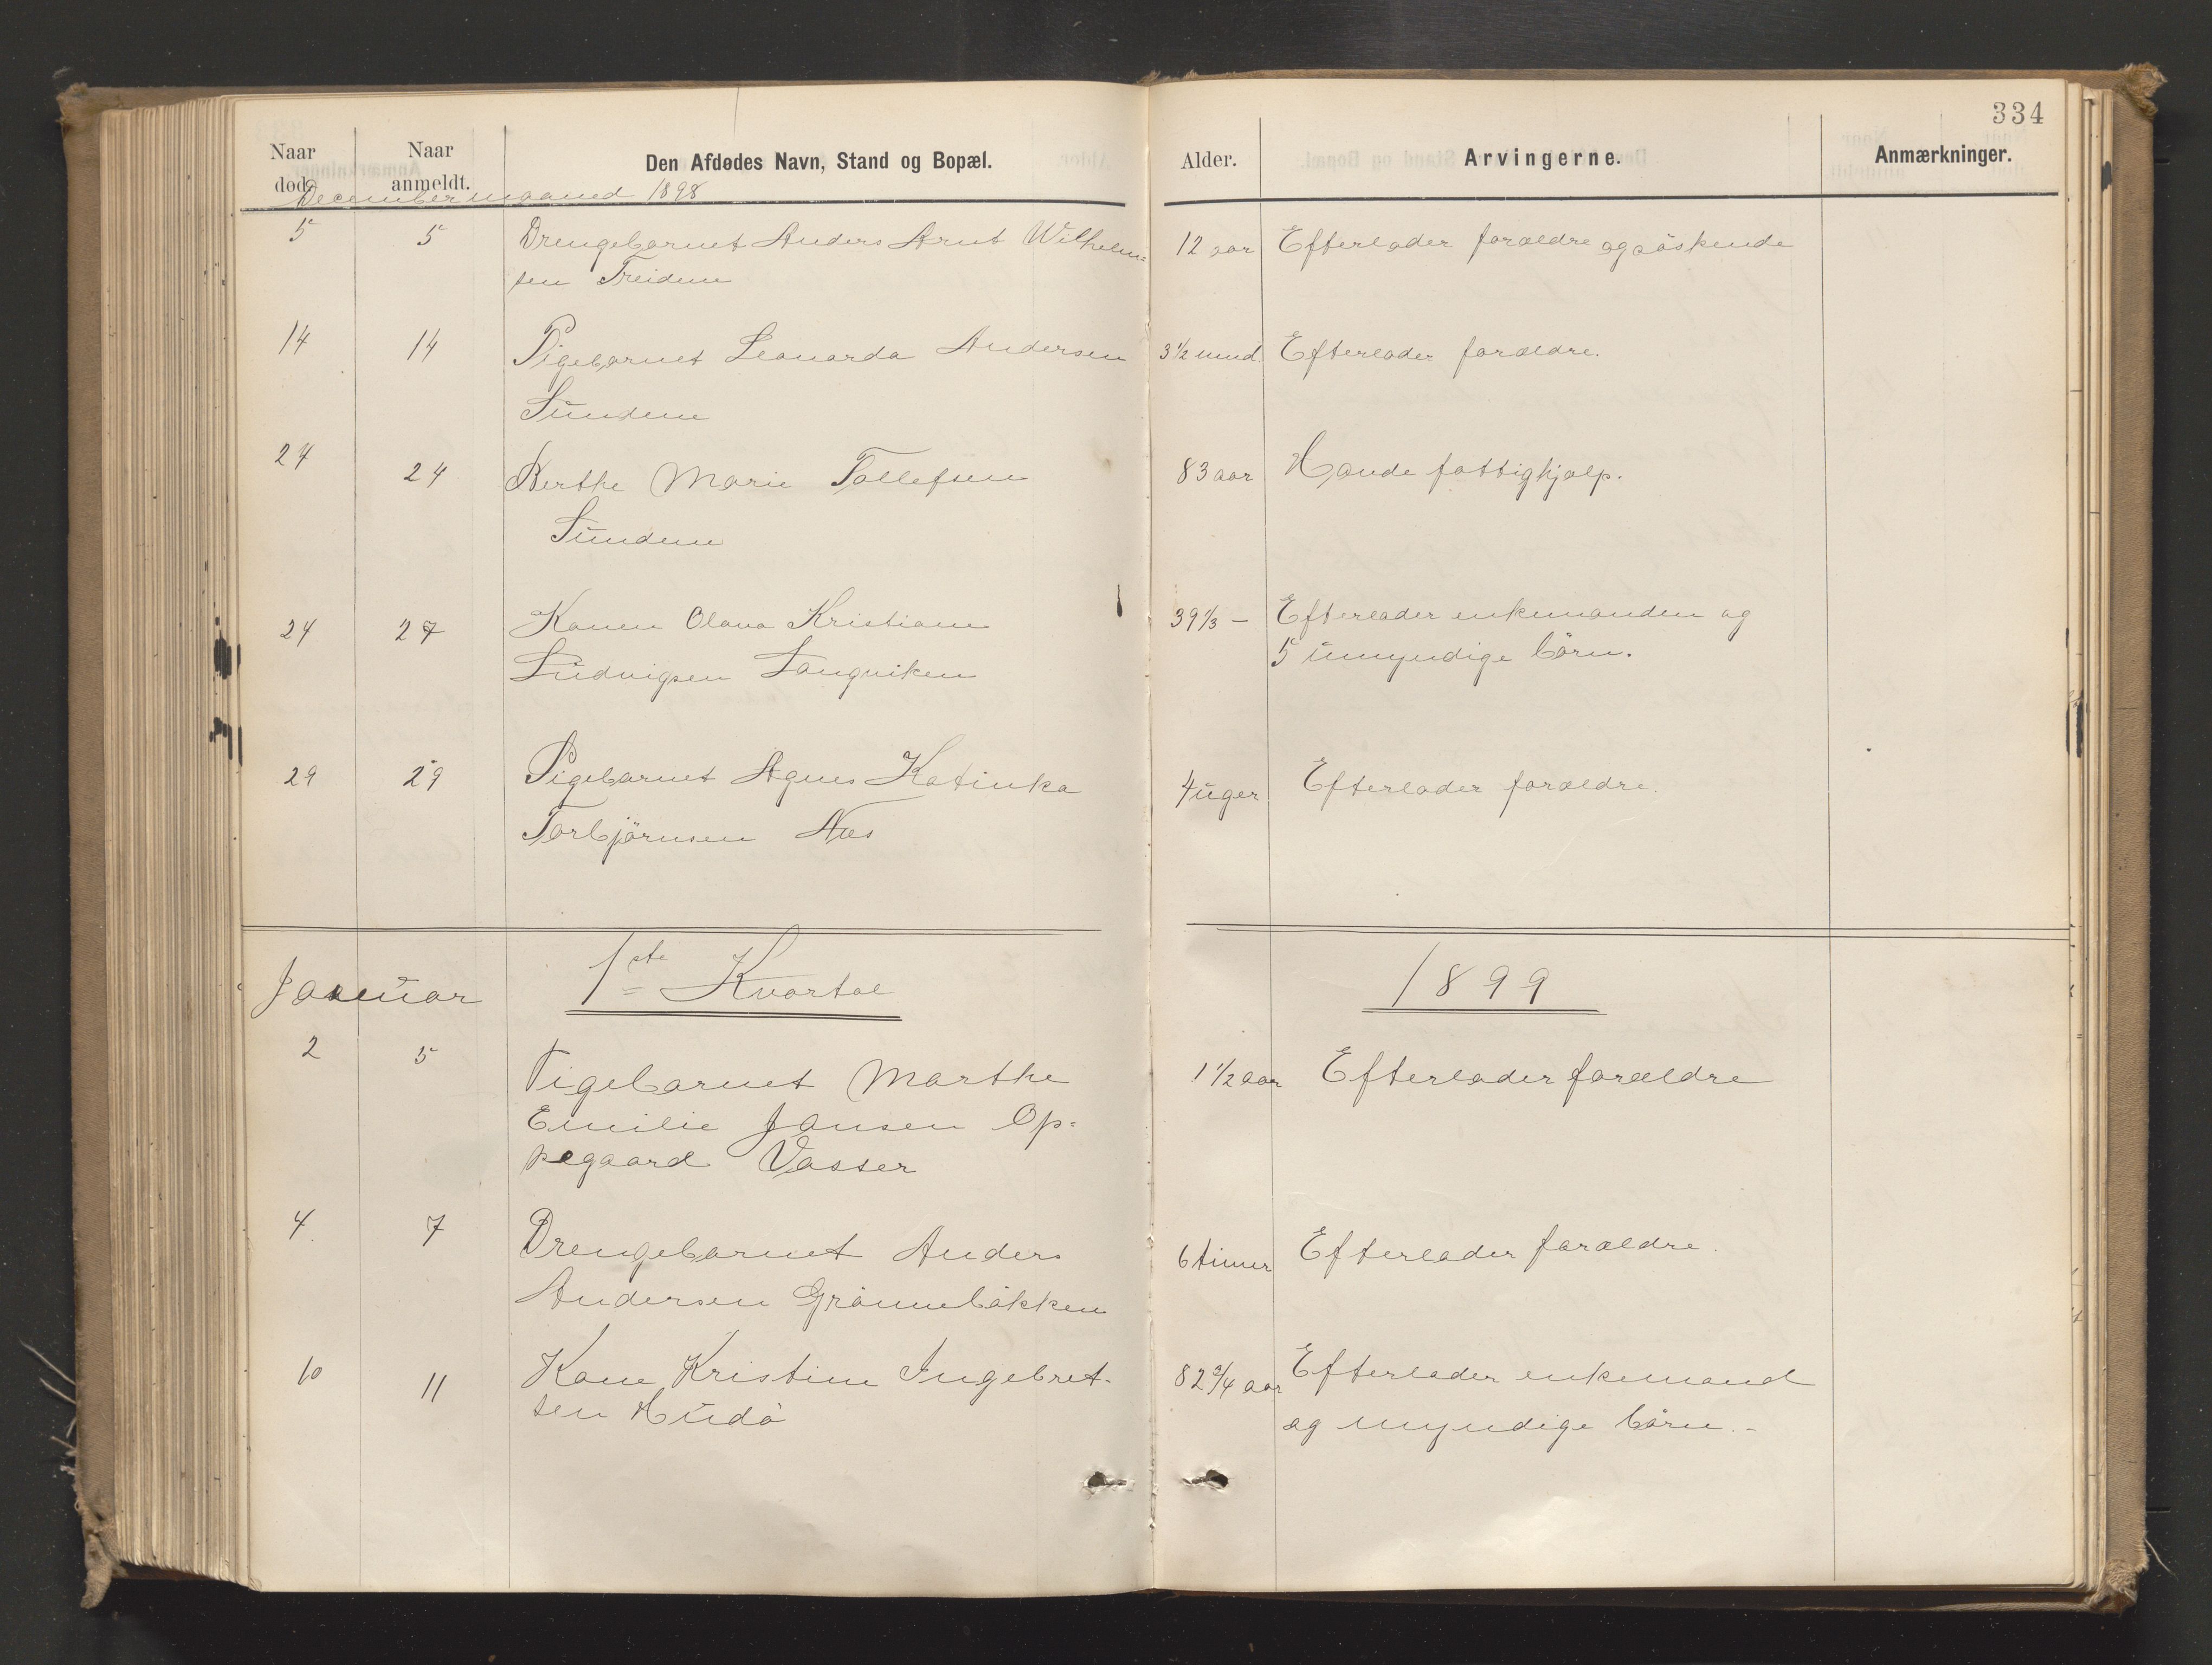 334
Naar død. Naar anmeldt. Den Afdødes Navn, Stand og Bopæl. Alder. Arvingerne. Anmærkninger.
Decembermaaned 1898
5 5 Drengebarnet Anders Arnt Wilhelm= 12 aar Efterlader forældre og söskende
sen Treidene
14 14 Pigebarnet Leonarda Andersen 3 1/2 mnd Efterlader forældre.
Sundene
24 24 Berthe Marie Tollefsen 83 aar Havde fattighjælp.
Sundene
24 27 Konen Olava Kristiane 39 1/3 - Efterlader enkemanden og
Ludvigsen Langviken 5 umyndige börn.
29 29 Pigebarnet Agnes Katinka 4 uger Efterlader forældre.
Torbjörnsen Næs
Januar 1ste Kvartal 1899
2 5 Pigebarnet Marthe 1 1/2 aar Efterlader forældre
Emilie Jansen Op=
pegaard Vasser
4 7 Drengebarnet Anders 6 timer Efterlader forældre.
Andersen Grönnebökken
10 11 Kone Kristine Ingebret- 82 3/4 aar Efterlader enkemand
sen Hudö og myndige börn.-